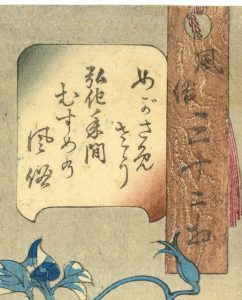 風俗三十二相
めがさめさう
弘化年間
むすめの
風俗